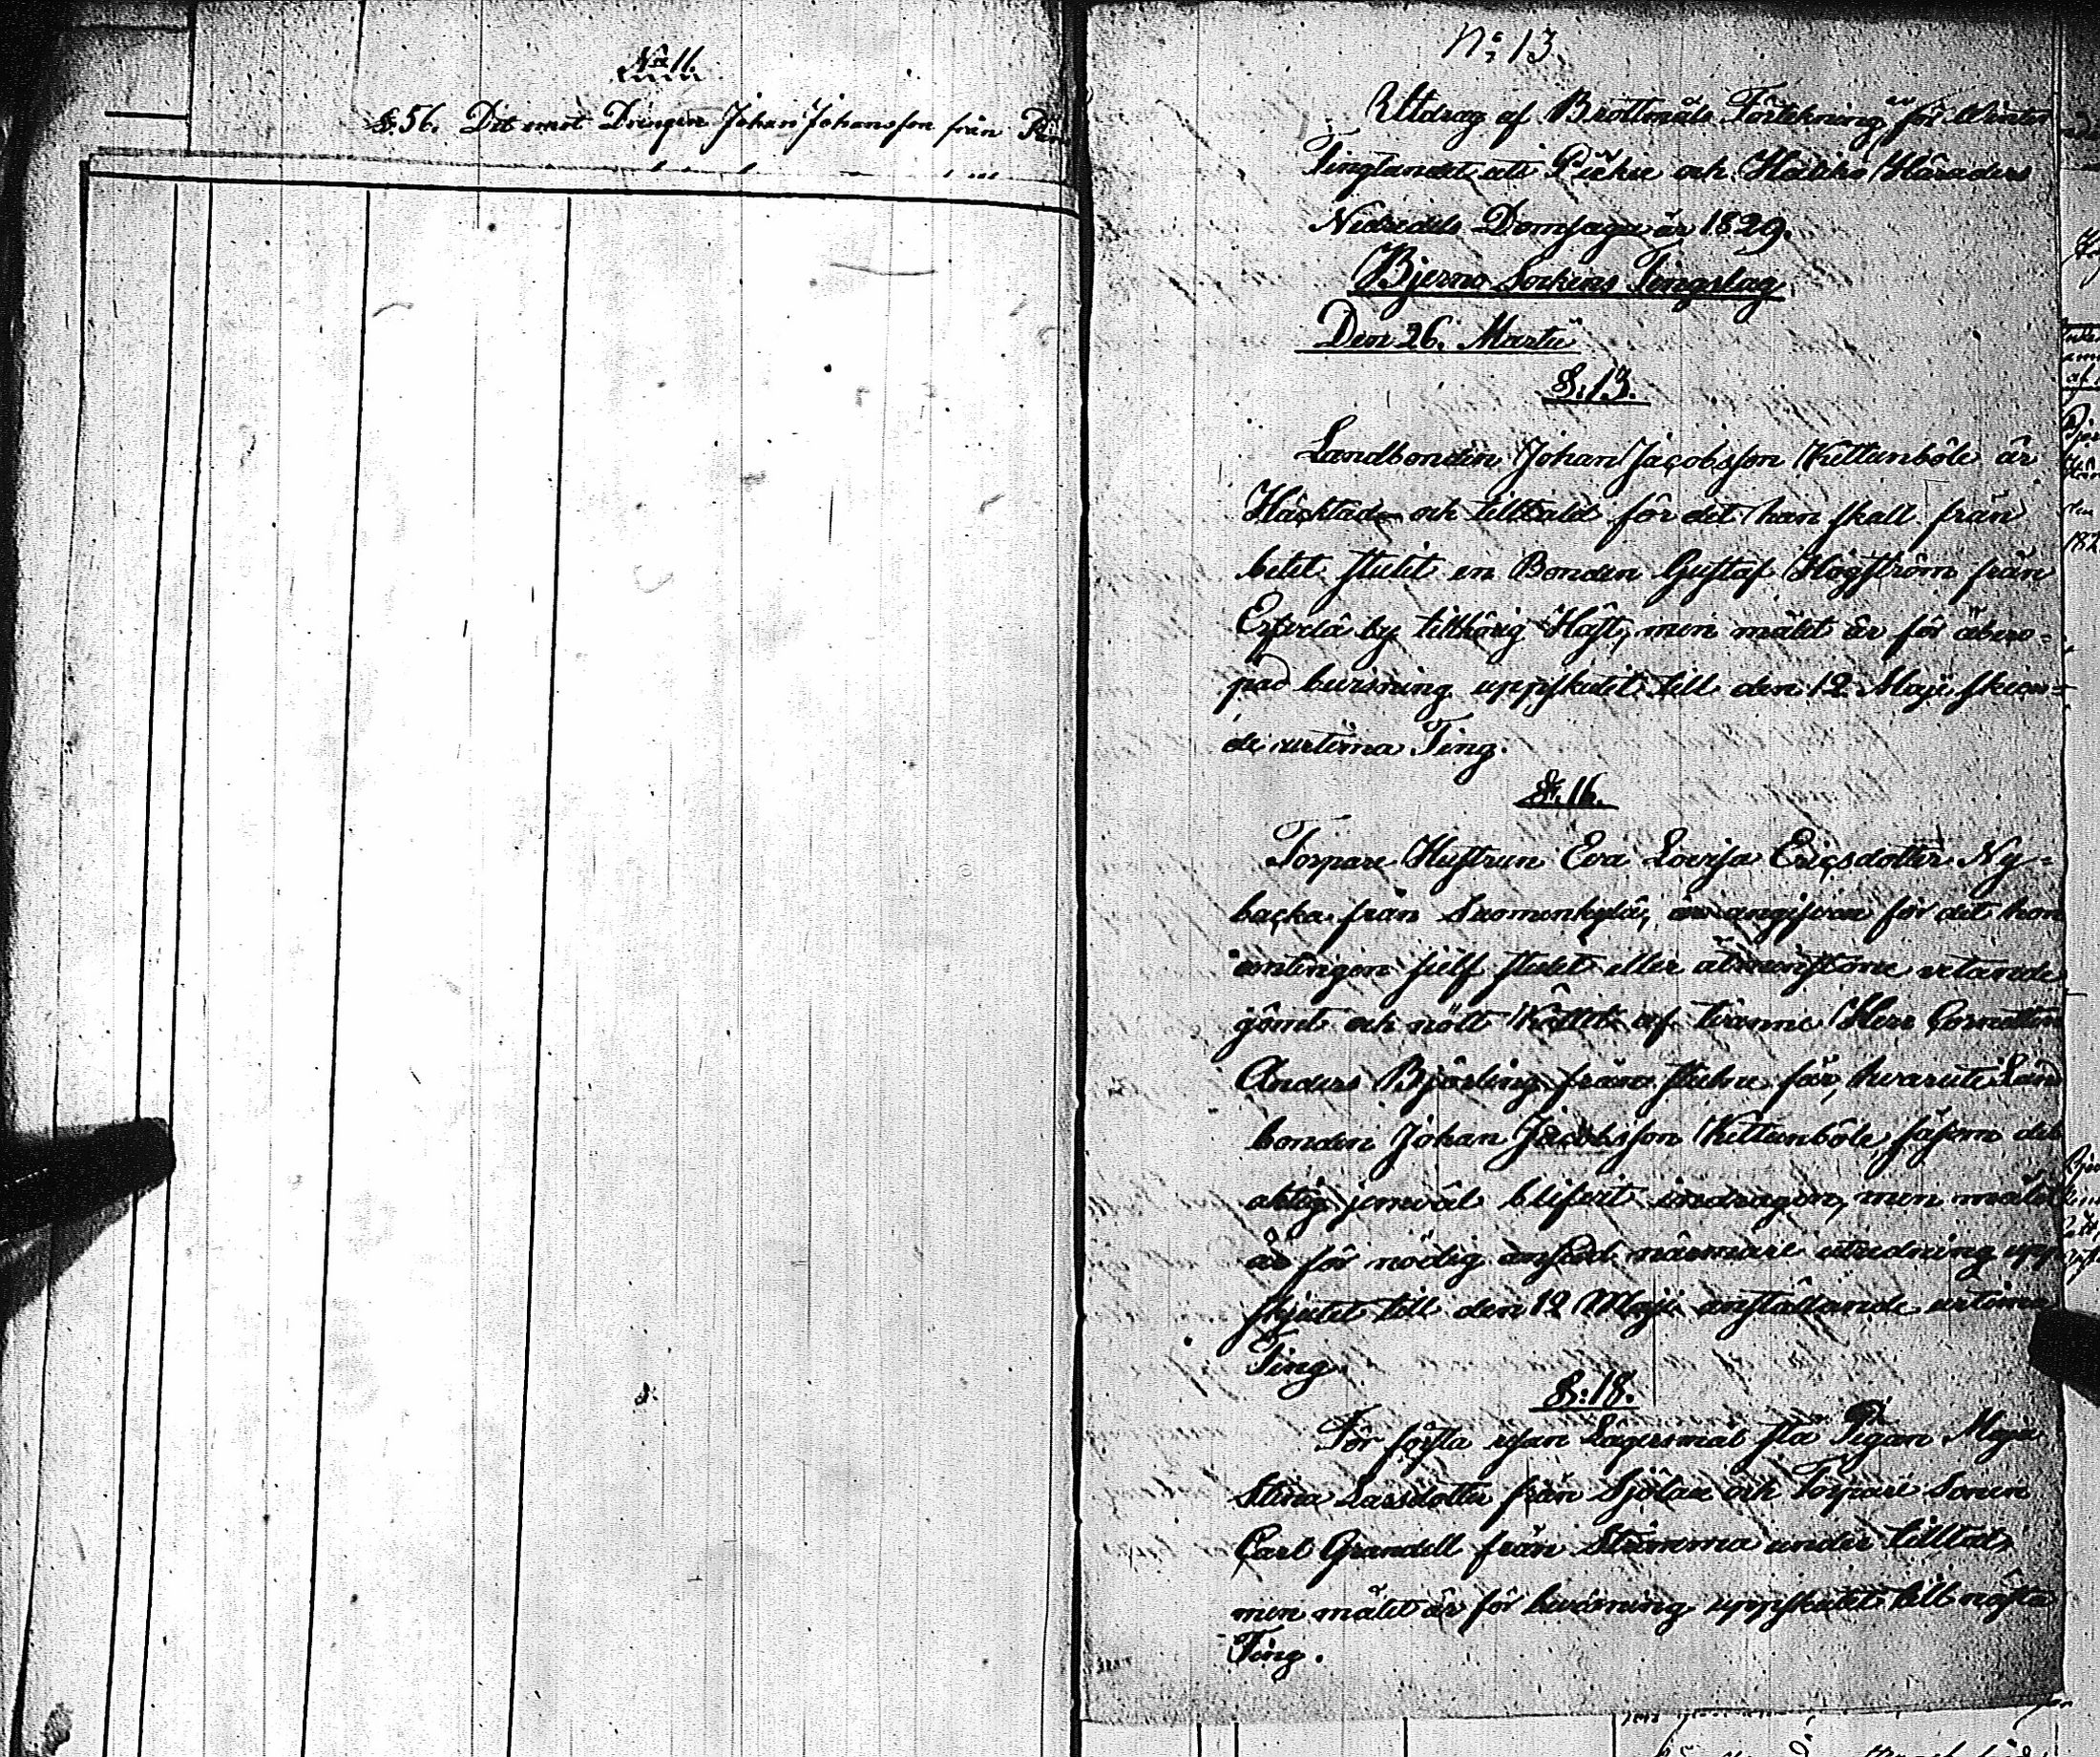 No 11.
§. 56. Det emot Drängen Johan Johansson från
No 13.
Utdrag af Brottmåls Förtekning för Winter
Tingtandet uti Pikkie och Halikko Häraders
Nedredels Domsaga år 1829.
Bjerno Sockens Tingslag
Den 26. Martii
§. 13.
Landbonden Johan Jacobsson Kettunböle är
Häktad och tilltald för det han skall från
betet stulit en Bonden Gustaf Högström från
by tillhörig Häst, men målet är för åbero-
pad bevisning uppskutit till den 12 Maji skien-
de urtima Ting.
§. 16.
Torpare Hustrun Eva Lovisa Ericsdotter Ny-
backa från Suomenkylä, är angifven för det hon
antingen sielf stulit eller åtminstone vetande
gömt och nött Köttet af tvänne Herr Cornetten
Anders Björling från stulne får, hvaruti Land
bonden Johan Jacobsson Kettunböle såsom del
aktig jemväl blifvit indragen, men målet
är för nödig ansedd närmare utredning upp
skjutet till den 12 Maji anställande urtima
Ting.
§. 18.
För första resan Lägersmål stå Pigan Maja
Stina Larsdotter från Sjölax och Torpare Sonen
Carl Grandell från Strömma under tilltal,
men målet är för bevisning uppskutet till nästa
Ting.